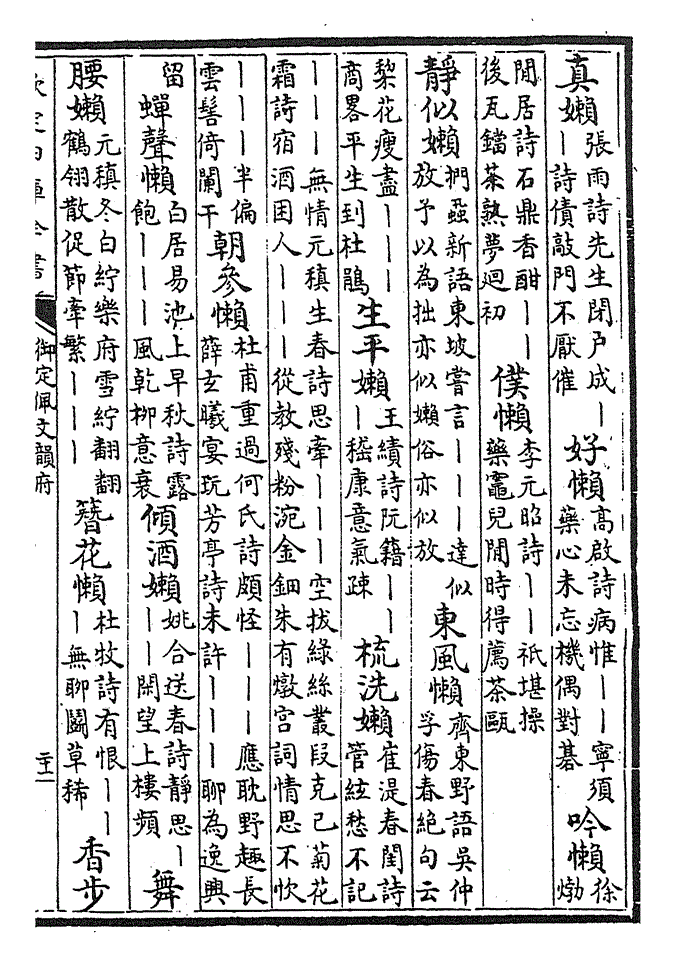 真嬾張雨詩先生閉戶成｜｜詩債敲門不厭催　好懶高啟詩病惟｜｜寧須藥心未忘機偶對碁　吟懶徐㶿
閒居詩石鼎香酣｜｜後瓦鐺茶熟夢迴初　僕懶李元昭詩｜｜祇堪操藥竈兒閒時得薦茶甌
靜似嬾捫蝨新語東坡嘗言｜｜｜達似放予以為拙亦似嬾俗亦似放　東風懶齊東野語吳仲孚傷春絕句云
棃花瘦盡｜｜｜商畧平生到杜鵑　生平嬾王績詩阮籍｜｜｜嵇康意氣疎　梳洗嬾崔湜春閨詩管絃愁不記
｜｜｜無情元稹生春詩思牽｜｜｜空拔綠絲叢段克己菊花霜詩宿酒困人｜｜｜從教殘粉涴金鈿朱有燉宮詞情思不忺
｜｜｜半偏雲髻倚闌干　朝參懶杜甫重過何氏詩頗怪｜｜｜應耽野趣長薛玄曦宴玩芳亭詩未許｜｜｜聊為逸興
留　蟬聲懶白居易池上早秋詩露飽｜｜｜風乾柳意衰　傾酒嬾姚合送春詩靜思｜｜｜閑望上樓頻　舞
腰嬾元稹冬白紵樂府雪紵翻翻鶴翎散促節牽繁｜｜｜　簪花懶杜牧詩有恨｜｜｜無聊鬭草稀　香步
御定佩文韻府
二十二